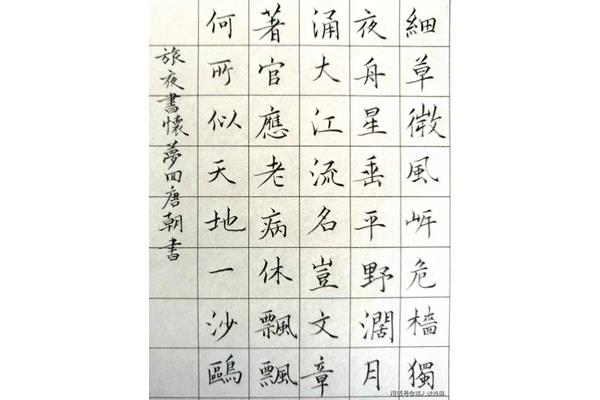 細草微風岸危檣獨
夜舟星垂平野濶月
涌大江流名豈文章
著官應老病休飄飄
何所似天地一沙鷗
旅夜書懷夢回唐朝書